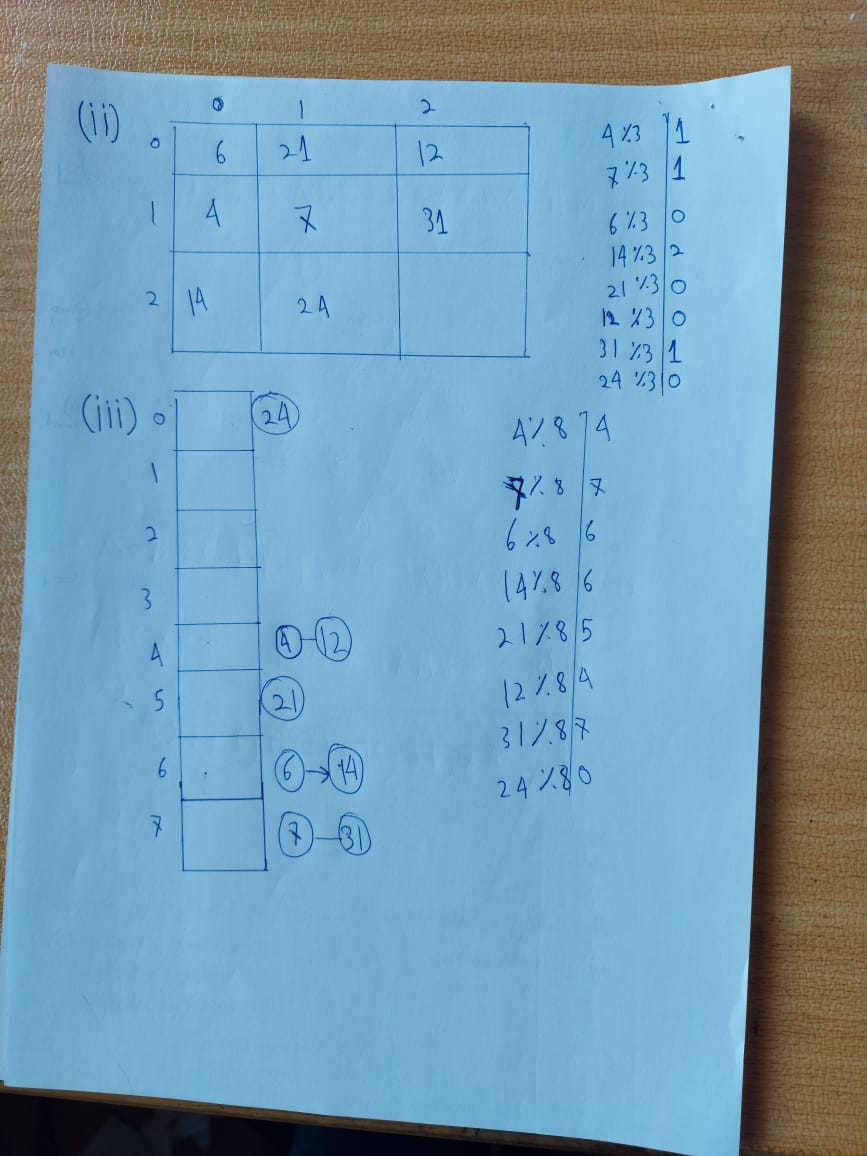 (ii) 0 1 2
0 6 21 12
1 4 7 31
2 14 24
4 %3 1
7 %3 1
6 %3 0
14 %3 2
21 %3 0
12 %3 0
31 %3 1
24 %3 0
(iii) 0 24
1
2
3
4 4 12
5 21
6 6 → 14
7 7 31
4 % 8 4
7 % 8 7
6 % 8 6
14 % 8 6
21 % 8 5
12 % 8 4
31 % 8 7
24 % 8 0